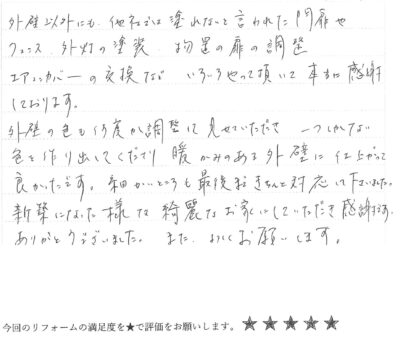 外壁以外にも、他社では塗れないと言われた門扉や
フェンス、外灯の塗装、物置の扉の調整
エアコンカバーの交換など いろいろやって頂いて本当に感謝
しております。
外壁の色も何度か調整して見せていただき 一つしかない
色を作り出してくださり 暖かみのある外壁に仕上がって
良かったです。細かいところも最後まできちんと対応して下さいました。
新築になった様な綺麗なお家にしていただき感謝です。
ありがとうございました。また、よろしくお願いします。
今回のリフォームの満足度を★で評価をお願いします。★★★★★